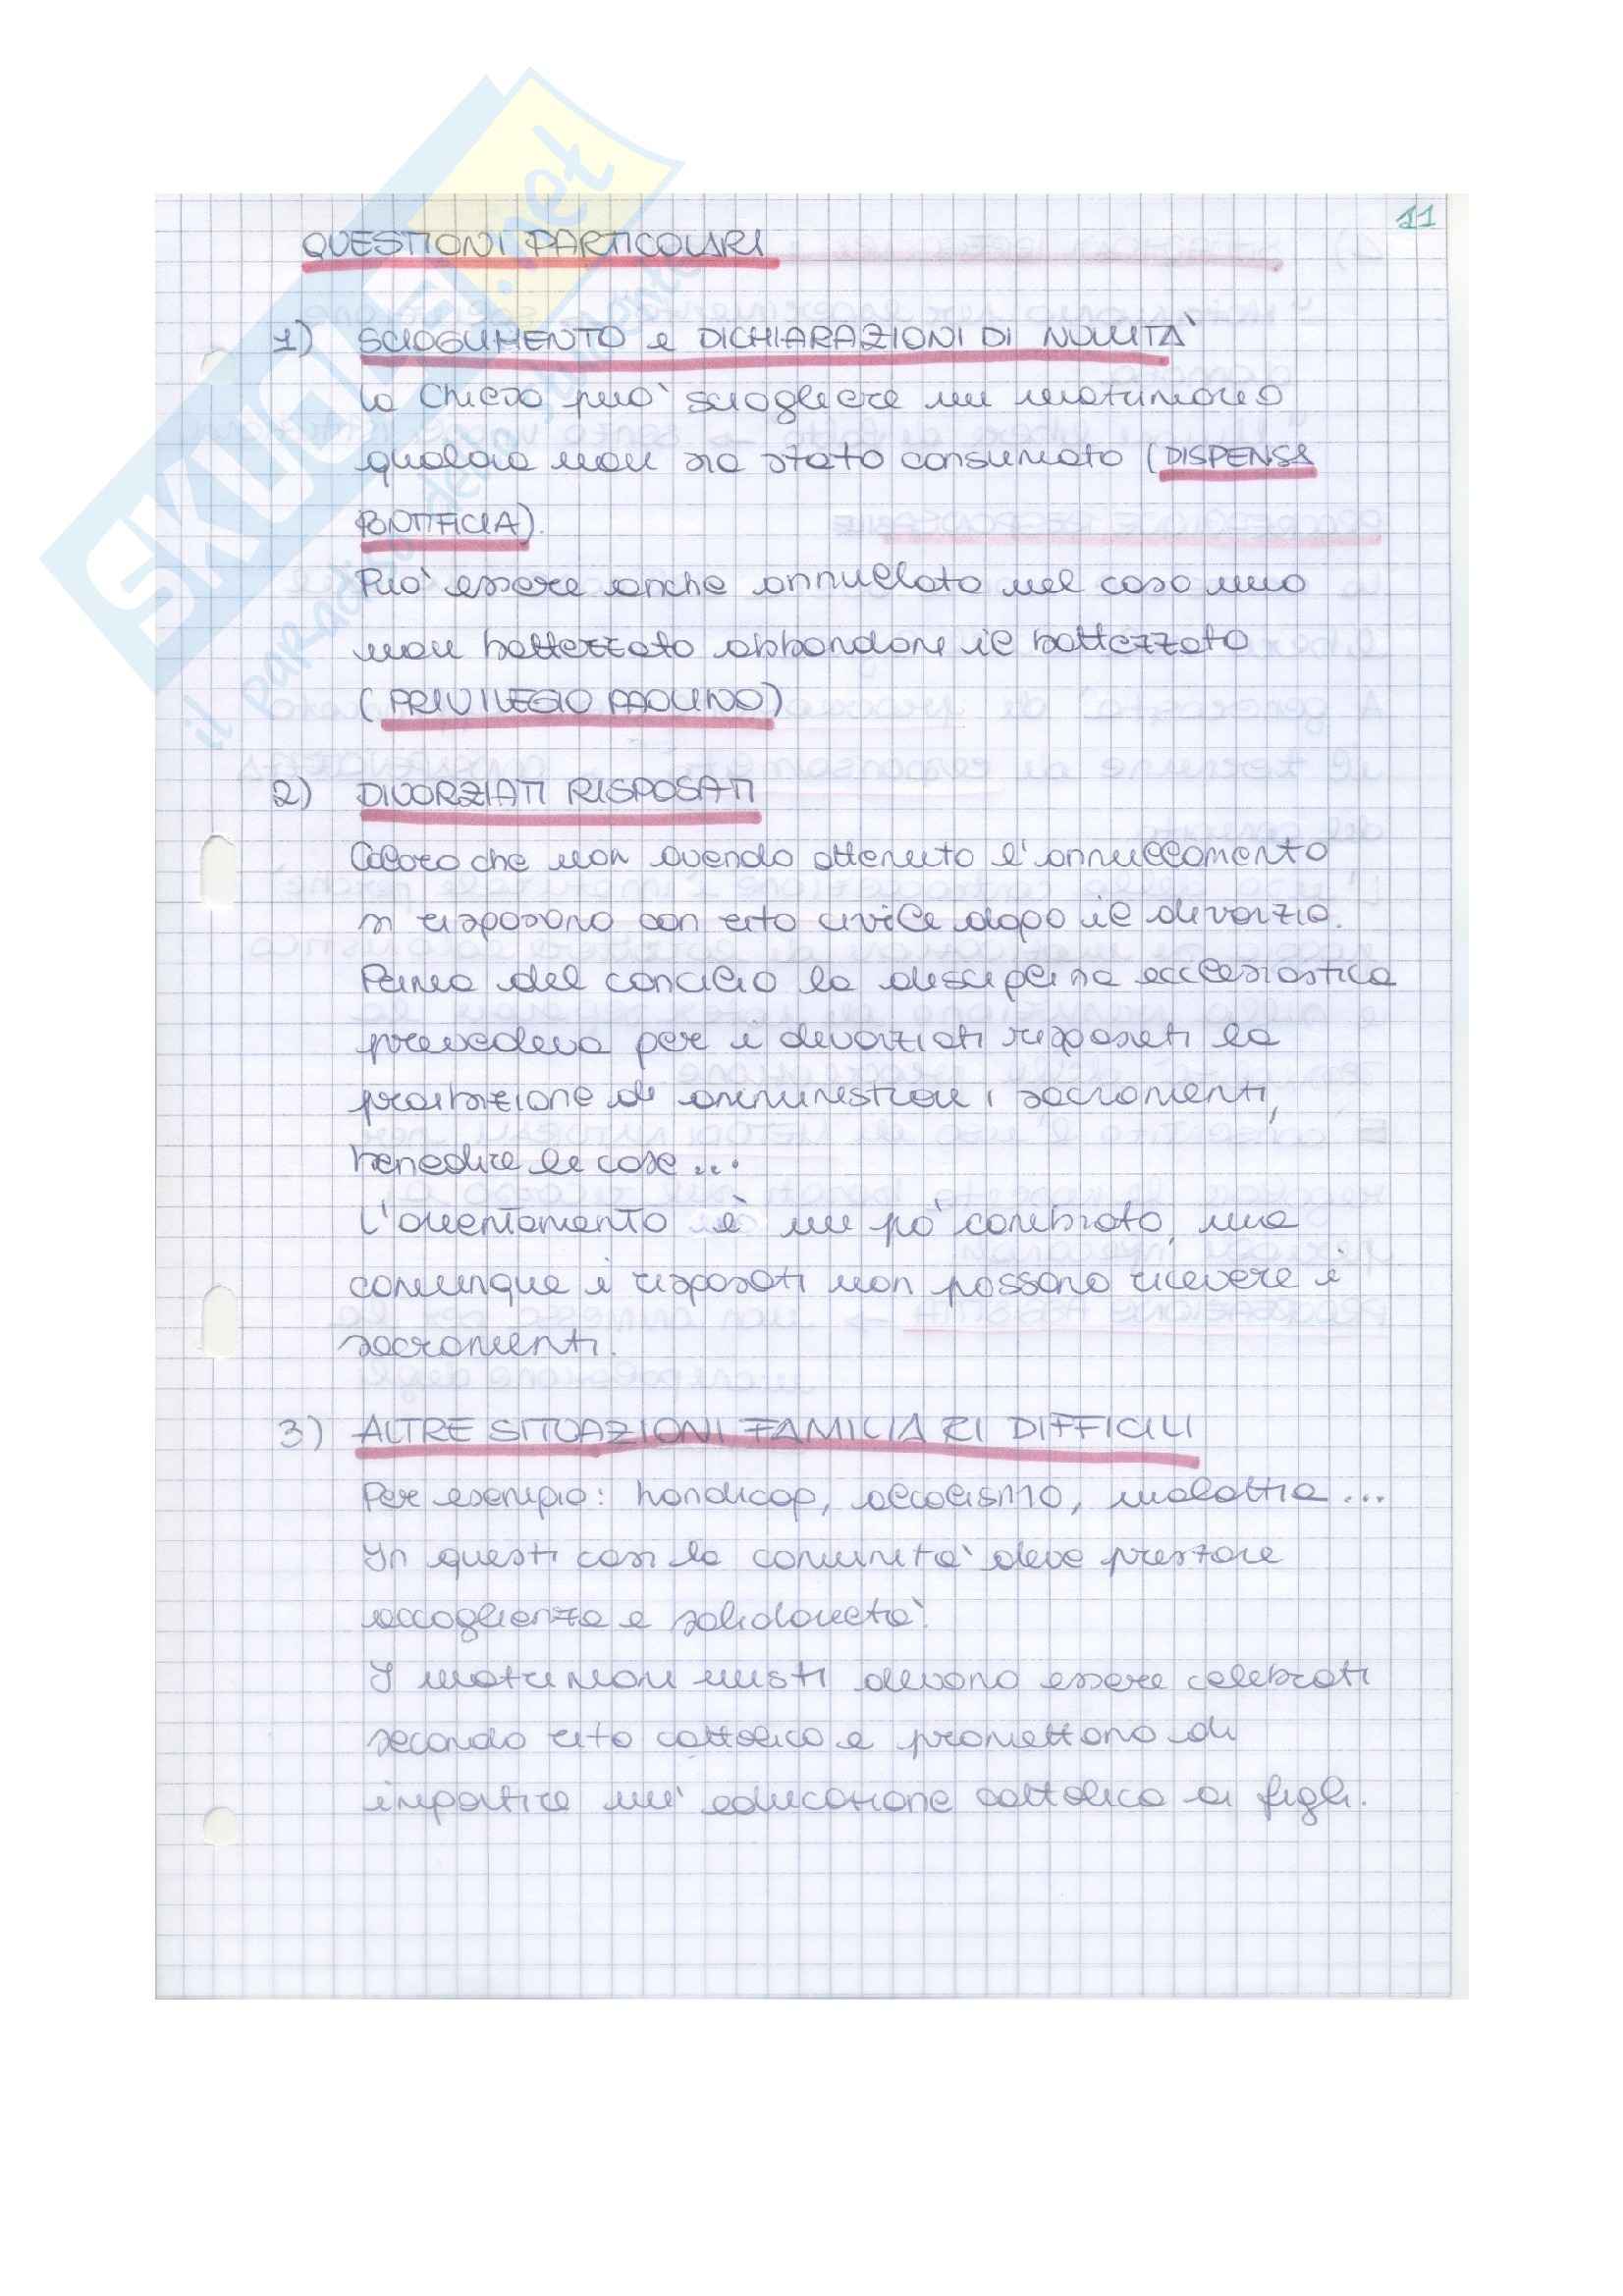 11
QUESTIONI PARTICOLARI
1) SCIOGLIMENTO e DICHIARAZIONI DI NULLITÀ
la Chiesa puo' sciogliere un matrimonio
qualora non sia stato consumato (DISPENSA
PONTIFICIA).
Puo' essere anche annullato nel caso uno
non battezzato abbandoni il battezzato
(PRIVILEGIO PAOLINO)
2) DIVORZIATI RISPOSATI
Coloro che non avendo ottenuto l'annullamento
si risposano con rito civile dopo il divorzio.
Prima del concilio la disciplina ecclesiastica
prevedeva per i divorziati risposati la
proibizione di amministrare i sacramenti,
benedire le case...
L'orientamento è un po' cambiato, ma
comunque i risposati non possono ricevere i
sacramenti.
3) ALTRE SITUAZIONI FAMILIARI DIFFICILI
Per esempio: handicap, alcolismo, malattia...
In questi casi la comunita' deve prestare
accoglienza e solidarieta'.
I matrimoni misti devono essere celebrati
secondo rito cattolico e promettono di
impartire un'educazione cattolica ai figli.
SKUOLA.net
il paradiso dello studente